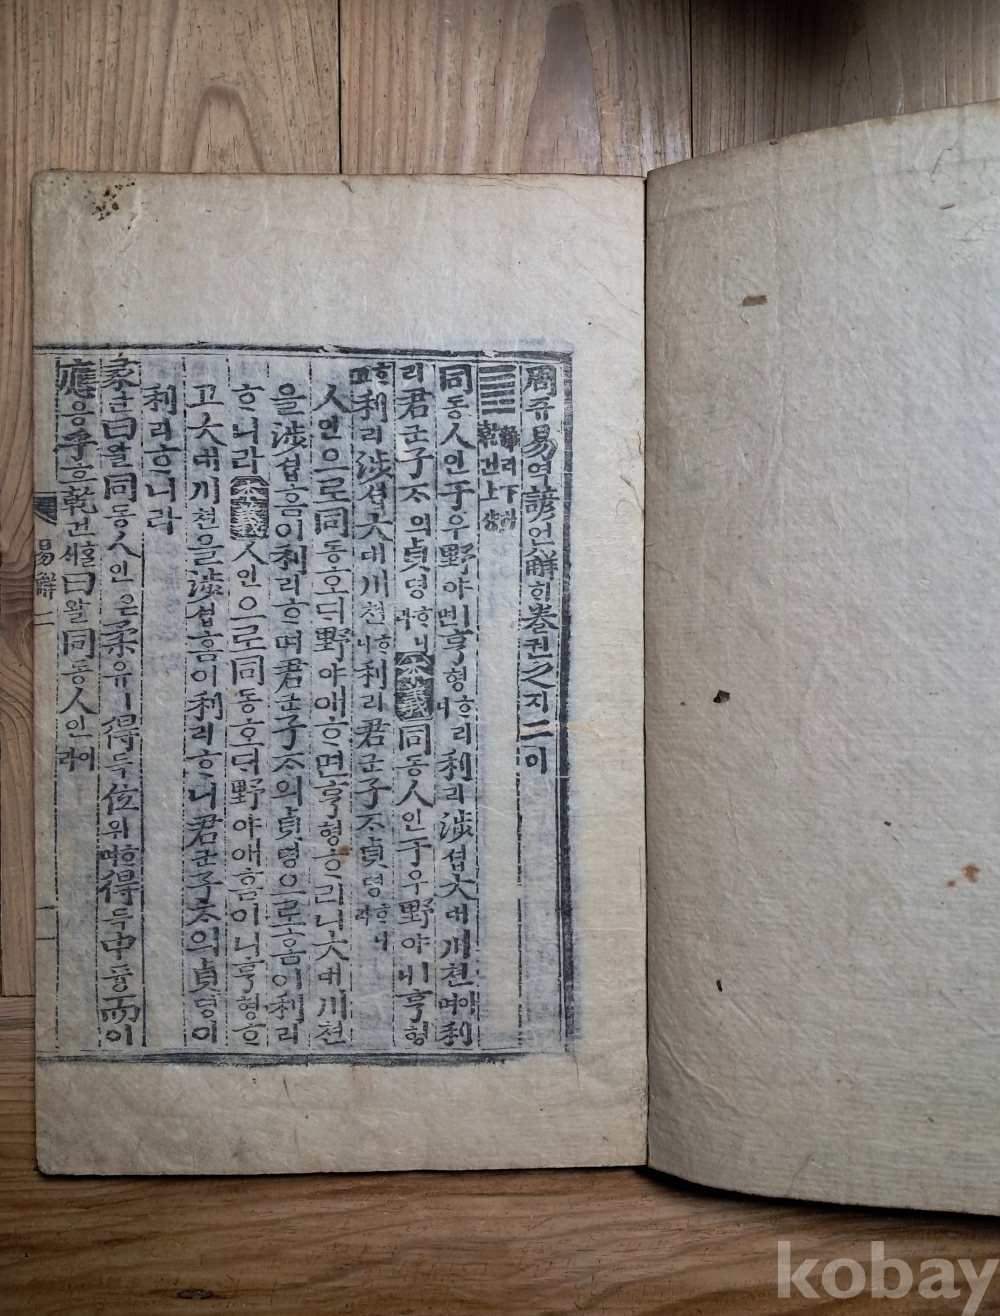 周쥬易역諺언解ᄒᆡ卷권之지二이
離리下하乾건上샹
同동人인于우野야ㅣ면亨형ᄒᆞ리니利리涉셥大대川쳔이며利
리君군子ᄌᆞ의貞뎡ᄒᆞ니라本義同동人인于우野야ㅣ니亨형
ᄒᆞ고利리涉셥大대川쳔ᄒᆞ니利리君군子ᄌᆞ貞뎡ᄒᆞ니라
人인으로同동호ᄃᆡ野야애ᄒᆞ면亨형ᄒᆞ리니大대川쳔
을涉셥홈이利리ᄒᆞ며君군子ᄌᆞ의貞뎡으로홈이利리
ᄒᆞ니라本義人인으로同동호ᄃᆡ野야애홈이니亨형ᄒᆞ
고大대川쳔을涉셥홈이利리ᄒᆞ니君군子ᄌᆞ의貞뎡이
利리ᄒᆞ니라
彖단曰왈同동人인은柔유ㅣ得득位위ᄒᆞ며得득中듕而이
應응乎호乾건ᄒᆞᆯᄉᆡ曰왈同동人인이라
易解二
kobay